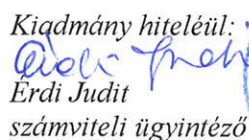 Kiadmány hiteléül:
Érdi Judit
számviteli ügyintéző